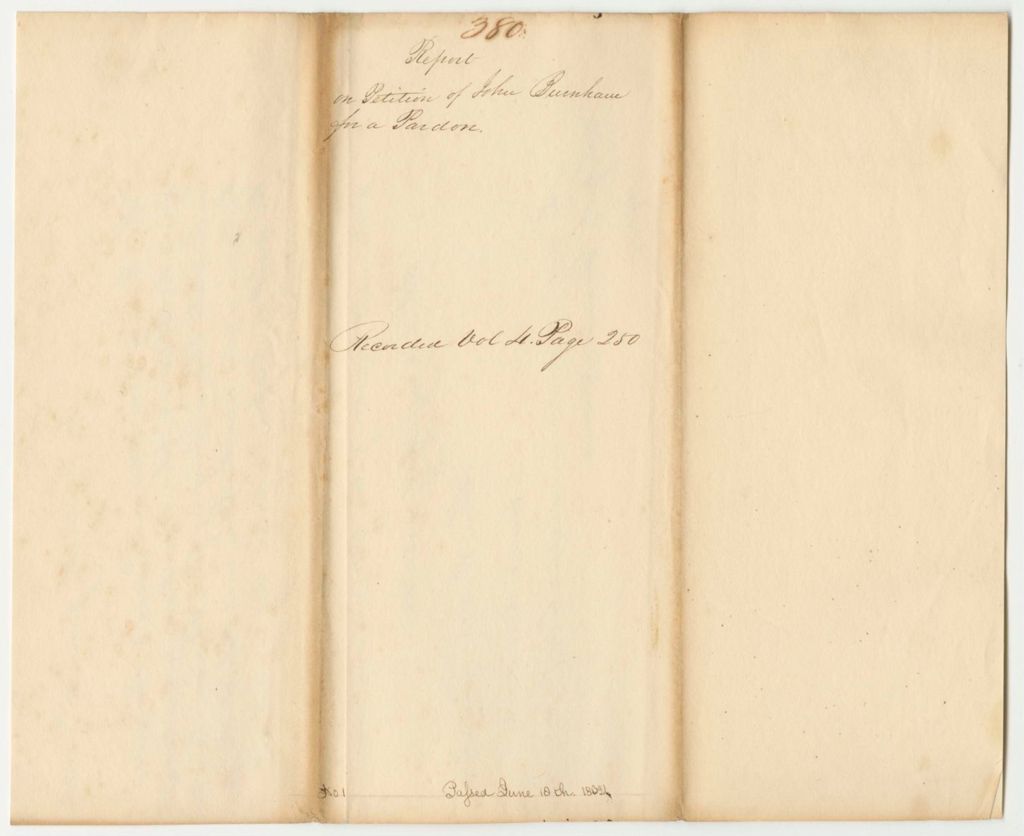 380.
Report
on Petition of John Burnham
for a Pardon.
Recorded Vol 4. Page 250
No 1
Passed June 18th.